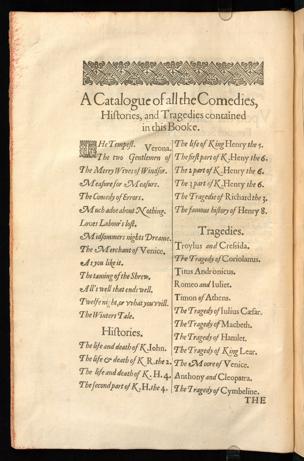 A Catalogue of all the Comedies,
Histories, and Tragedies contained
in this Booke.
THe Tempest.
The two Gentlemen of Verona.
The Merry Wives of Windsor.
Measure for Measure.
The Comedy of Errors.
Much adoe about Nothing.
Loves Labour's lost.
Midsommers nights Dreame.
The Merchant of Venice.
As you like it.
The taming of the Shrew.
All's well that ends well.
Twelfe night, or what you will.
The Winters Tale.
Histories.
The life and death of K. John.
The life & death of K R. the 2.
The life and death of K. H. 4.
The second part of K. H. the 4.
The life of King Henry the 5.
The first part of K. Heny the 6.
The 2 part of K. Henry the 6.
The 3 part of K. Henry the 6.
The Tragedie of Richard the 3.
The famous history of Henry 8.
Tragedies.
Troylus and Cressida.
The Tragedy of Coriolanus.
Titus Andronicus.
Romeo and Iuliet.
Timon of Athens.
The Tragedy of Iulius Cæsar.
The Tragedy of Macbeth.
The Tragedy of Hamlet.
The Tragedy of King Lear.
The Moore of Venice.
Anthony and Cleopatra.
The Tragedy of Cymbeline.
THE